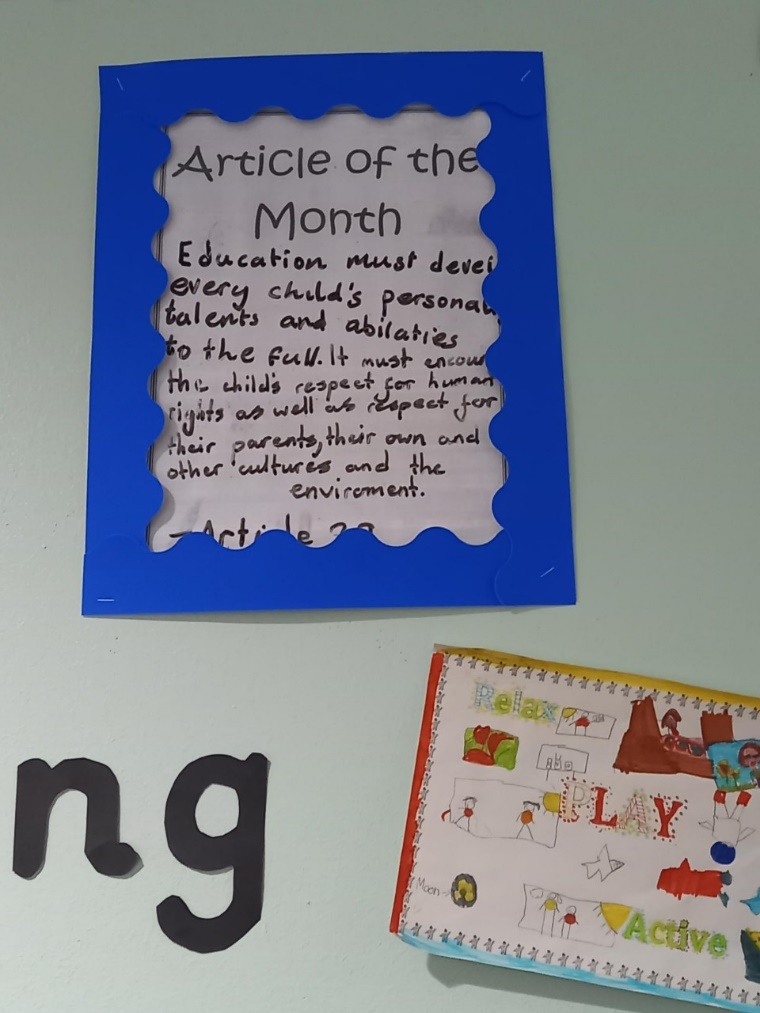 Article of the
Month
Education must devel
every child's personal
talents and abilaties
to the full. It must encou
the child's respect for human
rights as well as respect for
their parents, their own and
other cultures and the
enviroment.
- Article
ng
Relax
PLAY
Moon
Active